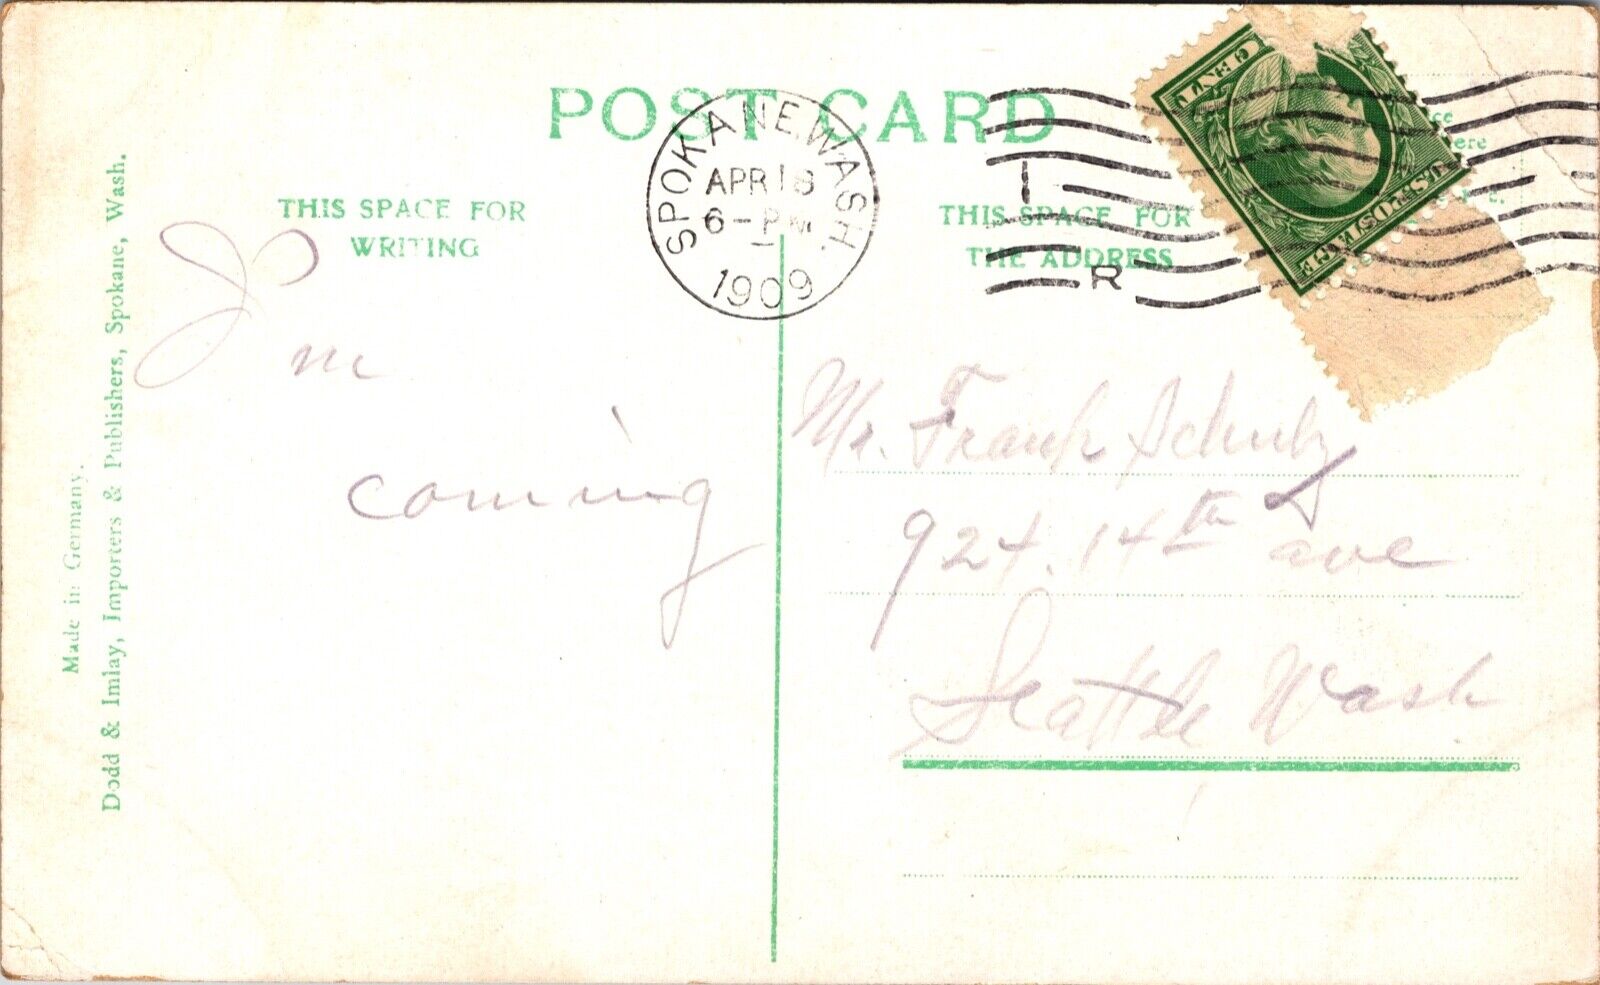 POST CARD
THIS SPACE FOR
WRITING
SPOKANE, WASH.
APR 18
6 - PM
1909
THIS SPACE FOR
THE ADDRESS
R
U.S. POSTAGE
ere
I'm
coming
Mr. Frank Schulz
924. 14th ave
Seattle Wash.
Made in Germany.
Dodd & Imlay, Importers & Publishers, Spokane, Wash.